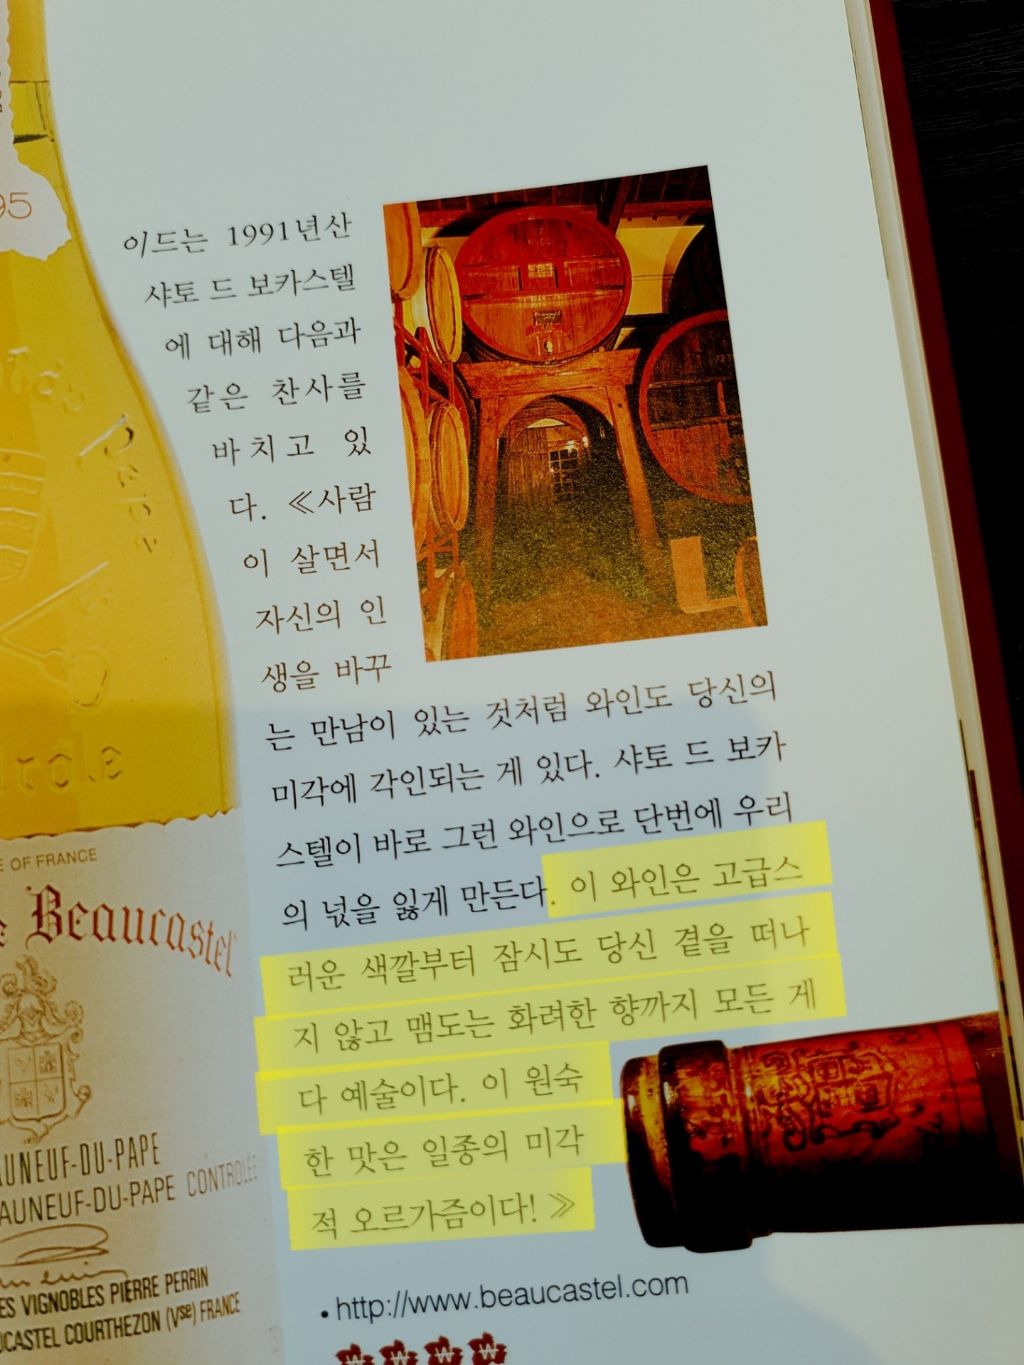 95
이드는 1991년산
샤토 드 보카스텔
에 대해 다음과
같은 찬사를
바치고 있
다. ≪사람
이 살면서
자신의 인
생을 바꾸
는 만남이 있는 것처럼 와인도 당신의
미각에 각인되는 게 있다. 샤토 드 보카
스텔이 바로 그런 와인으로 단번에 우리
의 넋을 잃게 만든다. 이 와인은 고급스
러운 색깔부터 잠시도 당신 곁을 떠나
지 않고 맴도는 화려한 향까지 모든 게
다 예술이다. 이 원숙
한 맛은 일종의 미각
적 오르가즘이다! ≫
• http://www.beaucastel.com
₩ ₩ ₩ ₩
Pape
E OF FRANCE
e Beaucastel
AUNEUF-DU-PAPE
AUNEUF-DU-PAPE CONTROLÉE
ES VIGNOBLES PIERRE PERRIN
UCASTEL COURTHEZON (Vse) FRANCE